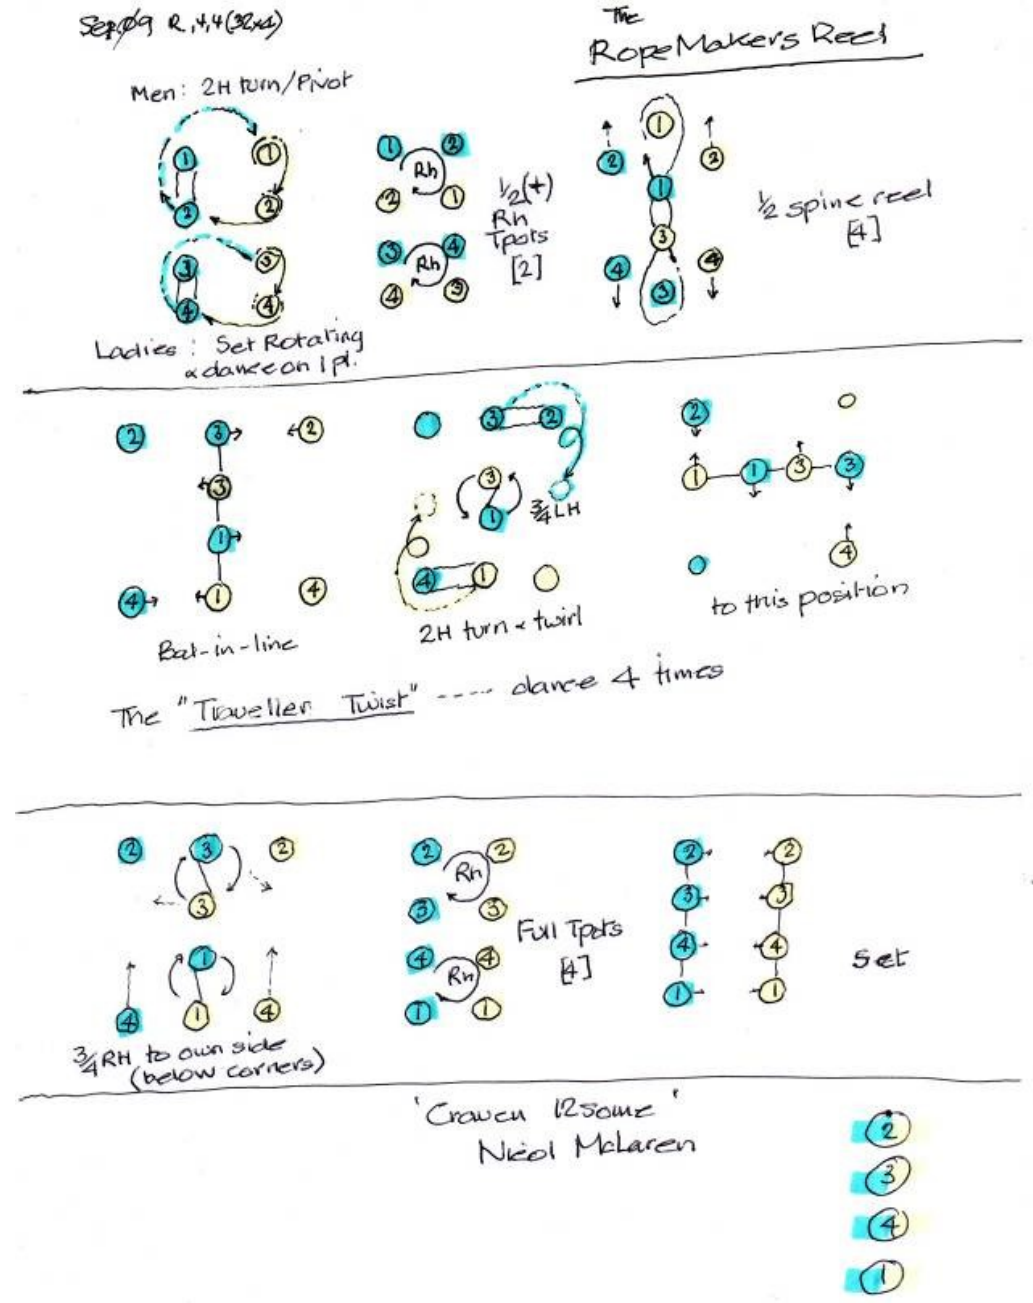 Sep 09 R,4,4(32x4)
The
RopeMakers Reel
Men: 2H turn/Pivot
1 1
2 2
3 3
4 4
Ladies: Set Rotating
& dance on 1 pl.
1 2
Rh
2 1
3 4
Rh
4 3
1/2(+)
Rh
Tpots
[2]
1
2 2
1
3
4 4
3
1/2 spine reel
[4]
2 3 2
3
1
4 1 4
Bal-in-line
3 2
3
1
3/4 LH
4 1
2H turn & twirl
2
1 1 3 3
4
to this position
The "Traveller Twist" ---- dance 4 times
2 3 2
3
1
4 1 4
3/4 RH to own side
(below corners)
2 2
Rh
3 3
4 4
Rh
1 1
Full Tpots
[4]
2 2
3 3
4 4
1 1
Set
'Craven 12some'
Nicol McLaren
2
3
4
1